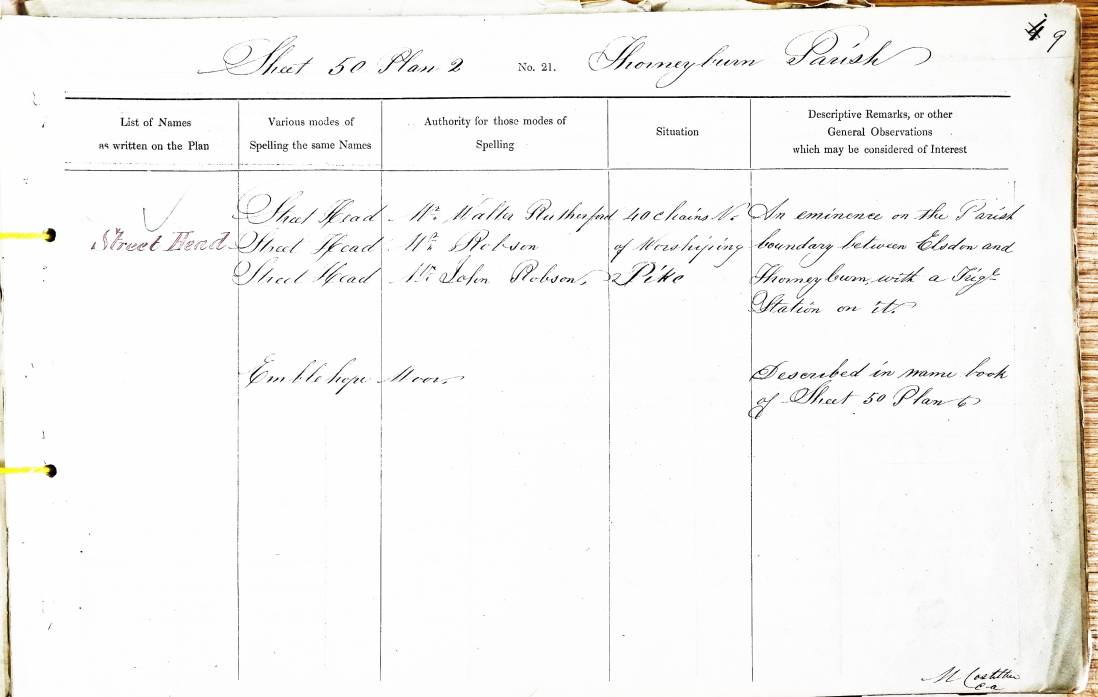 9
Sheet 50 Plan 2 No. 21. Thorneyburn Parish
List of Names
as written on the Plan
Various modes of
Spelling the same Names
Authority for those modes of
Spelling
Situation
Descriptive Remarks, or other
General Observations
which may be considered of Interest
Street Head
Street Head
Street Head
Street Head
Mr. Walter Rutherford
Mr. Robson
Mr. John Robson.
40 chains N.
of Worshiping
Pike
An eminence on the Parish
boundary between Elsdon and
Thorneyburn, with a Trigl.
Station on it.
Emblehope Moor.
Described in name book
of Sheet 50 Plan 6
C.a